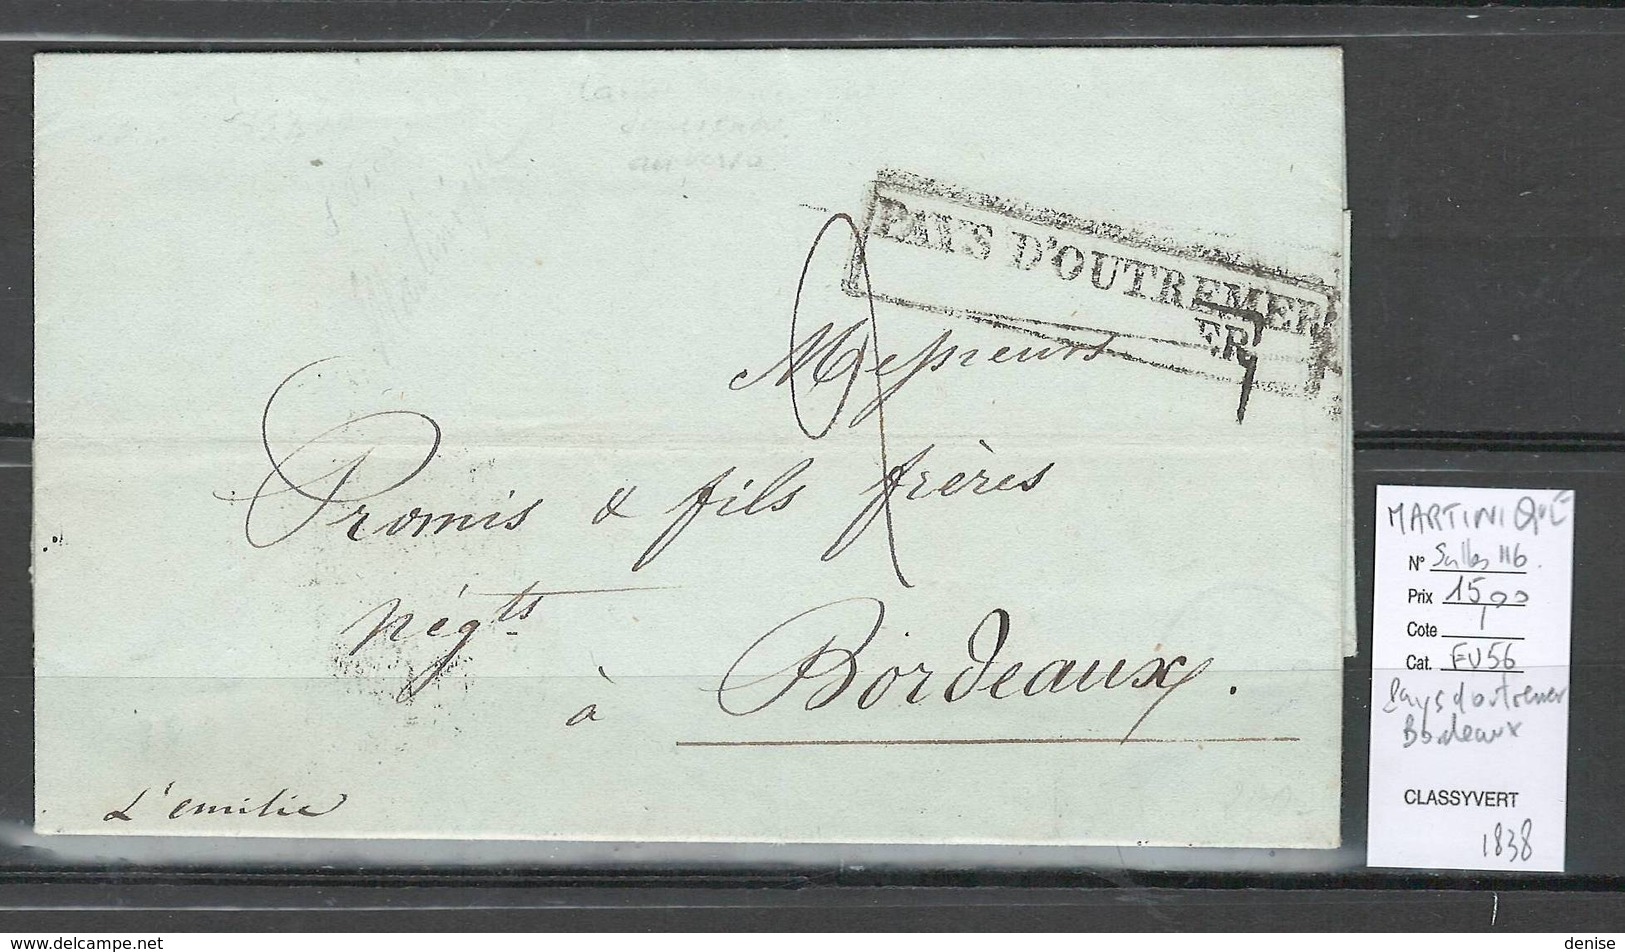 PAYS D'OUTREMER
ER
Messieurs
Promis & fils frères
négts
à Bordeaux.
L'emilie
MARTINIQUE
N° Salles 116.
Prix 15,00
Cote
Cat. EU56
Pays d'outremer
Bordeaux
CLASSYVERT
1838
delcampe.net
denise